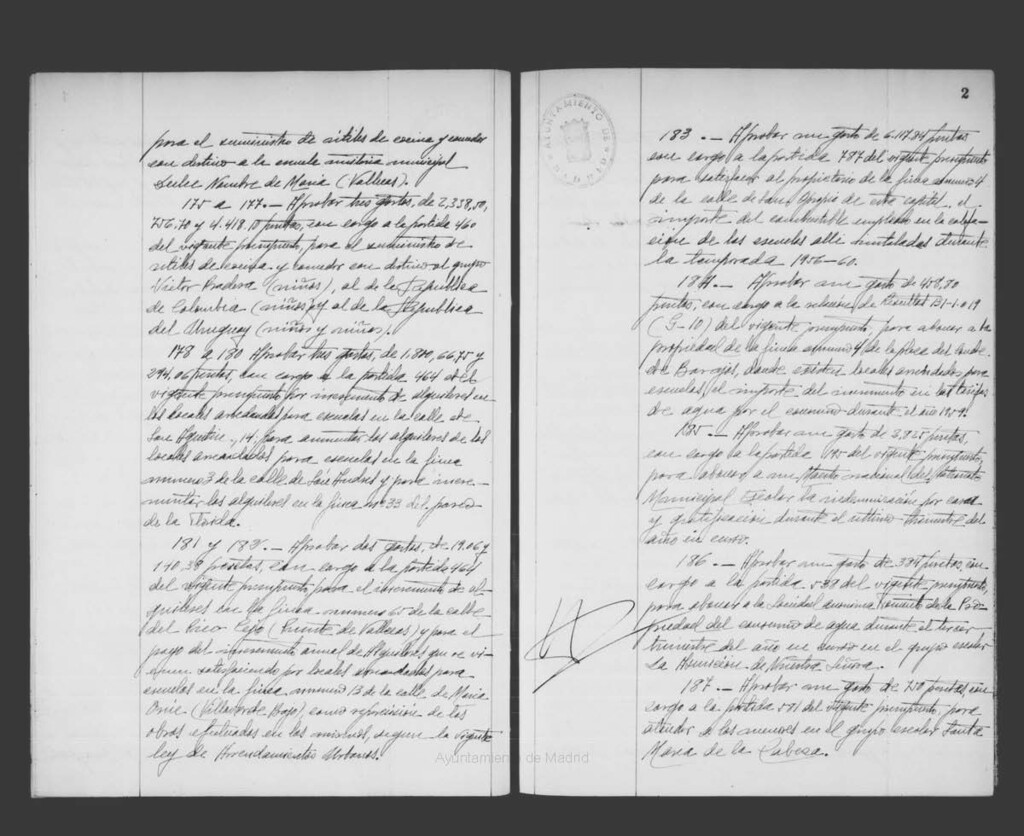 para el suministro de útiles de cocina y comedor
con destino a la escuela unitaria municipal
Dulce Nombre de María (Vallecas).
175 a 177.— Aprobar tres gastos, de 2,358,50,
756.70 y 4.418,10 pesetas, con cargo a la partida 460
del vigente presupuesto, para el suministro de
útiles de cocina y comedor con destino al grupo
Víctor Pradera (niños), al de la República
de Colombia (niños) y al de la República
del Uruguay (niños y niñas).
178 a 180 Aprobar tres gastos, de
pesetas, con cargo a la partida 464 del
vigente presupuesto por incremento de alquileres en
los locales arrendados para escuelas en la calle de
San Agustín, 14, para aumentar los alquileres de los
locales arrendados para escuelas en la finca
número 3 de la calle de y para incre-
mentar los alquileres en la finca nº 33 del paseo
de la Florida.
181 y 182.— Aprobar dos gastos, de
pesetas, con cargo a la partida 464
del vigente presupuesto para el incremento de al-
quileres en la finca número 65 de la calle
del Pico (Puente de Vallecas) y para el
pago del incremento anual de alquileres que se vi-
enen satisfaciendo por locales arrendados para
escuelas en la finca número 13 de la calle de María
(Villaverde Bajo), como repercusión de las
obras efectuadas en los mismos, según la vigente
ley de Arrendamientos Urbanos.
Ayuntamiento de Madrid
AYUNTAMIENTO DE MADRID
2
183.— Aprobar un gasto de 6.117.84 pesetas
con cargo a la partida 787 del vigente presupuesto
para satisfacer al propietario de la finca número 4
de la calle de San de esta capital, el
importe del combustible empleado en la calefac-
ción de las escuelas allí instaladas durante
la temporada 1956-60.
184.— Aprobar un gasto de 458,80
pesetas, con cargo a la relación de Resultas
(G-10) del vigente presupuesto para abonar a la
propiedad de la finca número 4 de la plaza del Conde
de Barajas, donde existen locales arrendados para
escuelas, el importe del incremento en las tarifas
de agua por el consumo durante el año 1959.
185.— Aprobar un gasto de 3,825 pesetas,
con cargo a la partida 195 del vigente presupuesto,
para abonar a un Maestro nacional del Patronato
Municipal Escolar la indemnización por casa
y gratificación durante el último trimestre del
año en curso.
186.— Aprobar un gasto de pesetas, con
cargo a la partida 538 del vigente presupuesto,
para abonar a la Sociedad anónima Fomento de la Pro-
piedad del consumo de agua durante el tercer
trimestre del año en curso en el grupo escolar
La Asunción de Nuestra Señora.
187.— Aprobar un gasto de 750 pesetas con
cargo a la partida 581 del vigente presupuesto para
atender a los menores en el grupo escolar Santa
María de la Cabeza.